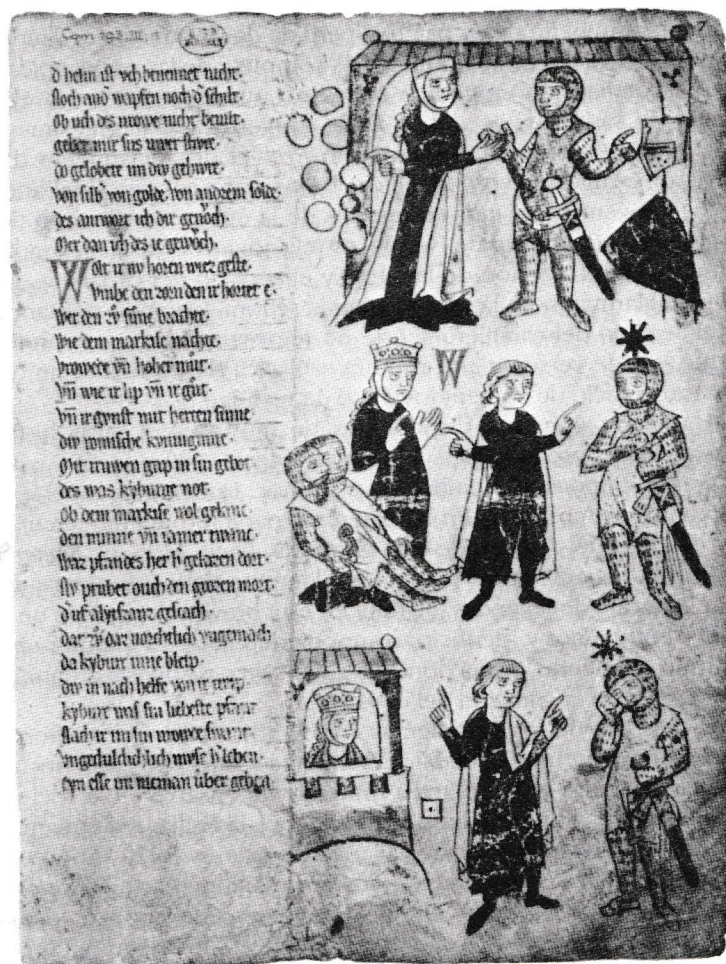 Cgm 193, III, 1
d helm ist vch benennet nicht·
noch and wapfen noch d schilt·
ob uch des vrowe nicht bevilt·
gebet mir sus uwer stivre·
do gelobete im div gehivre·
von silb von golde von andrem solde·
des antwort ich dir genoch·
Mer dan ich des ie gewoch·
Wolt ir nv horen wiez geste·
Vmbe den zorn den ir hortet e·
wer den zv sune brachte·
wie dem markise nachte·
vrowede vn hoher mut·
vn wie ir lip vn ir gut·
vn ir gunst mit herren sinne
div romische kuniginne·
Mit truwen grap in sin gebot·
des was kyburge not·
ob dem markise wol gelanc·
den minne vn iamer twanc·
waz pfandes her h gelazen dort·
siv pruvet ouch den grozen mort·
d uf alyscanz gescach·
dar zv daz vorchtlich vngemach
da kyburc inne bleip·
div in nach helfe von ir treip
kyburc was sin liebeste pfant
nach ir im sin vrowde swant·
vngeduldichlich muse h leben·
W